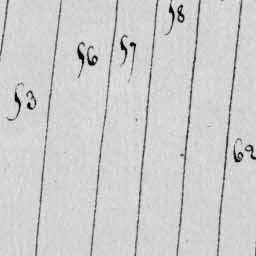 58
56
57
53
62